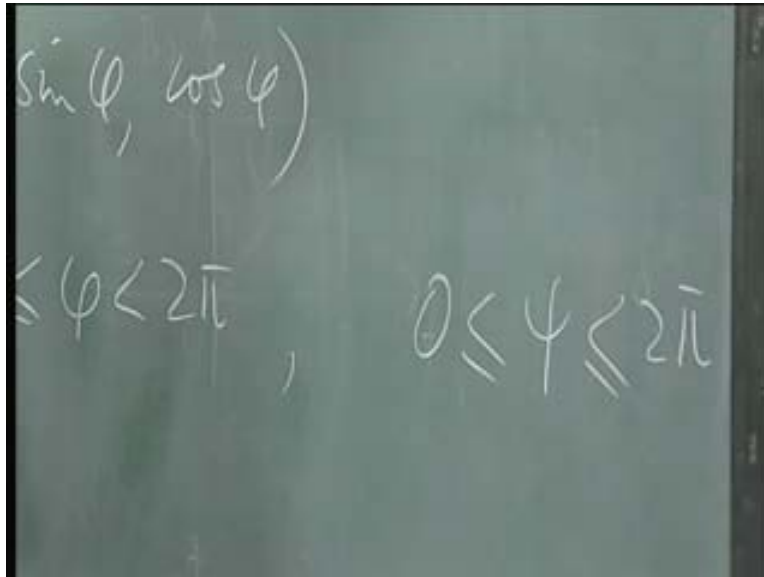 sin φ, cos φ)
≤ φ < 2π, 0 ≤ ψ ≤ 2π